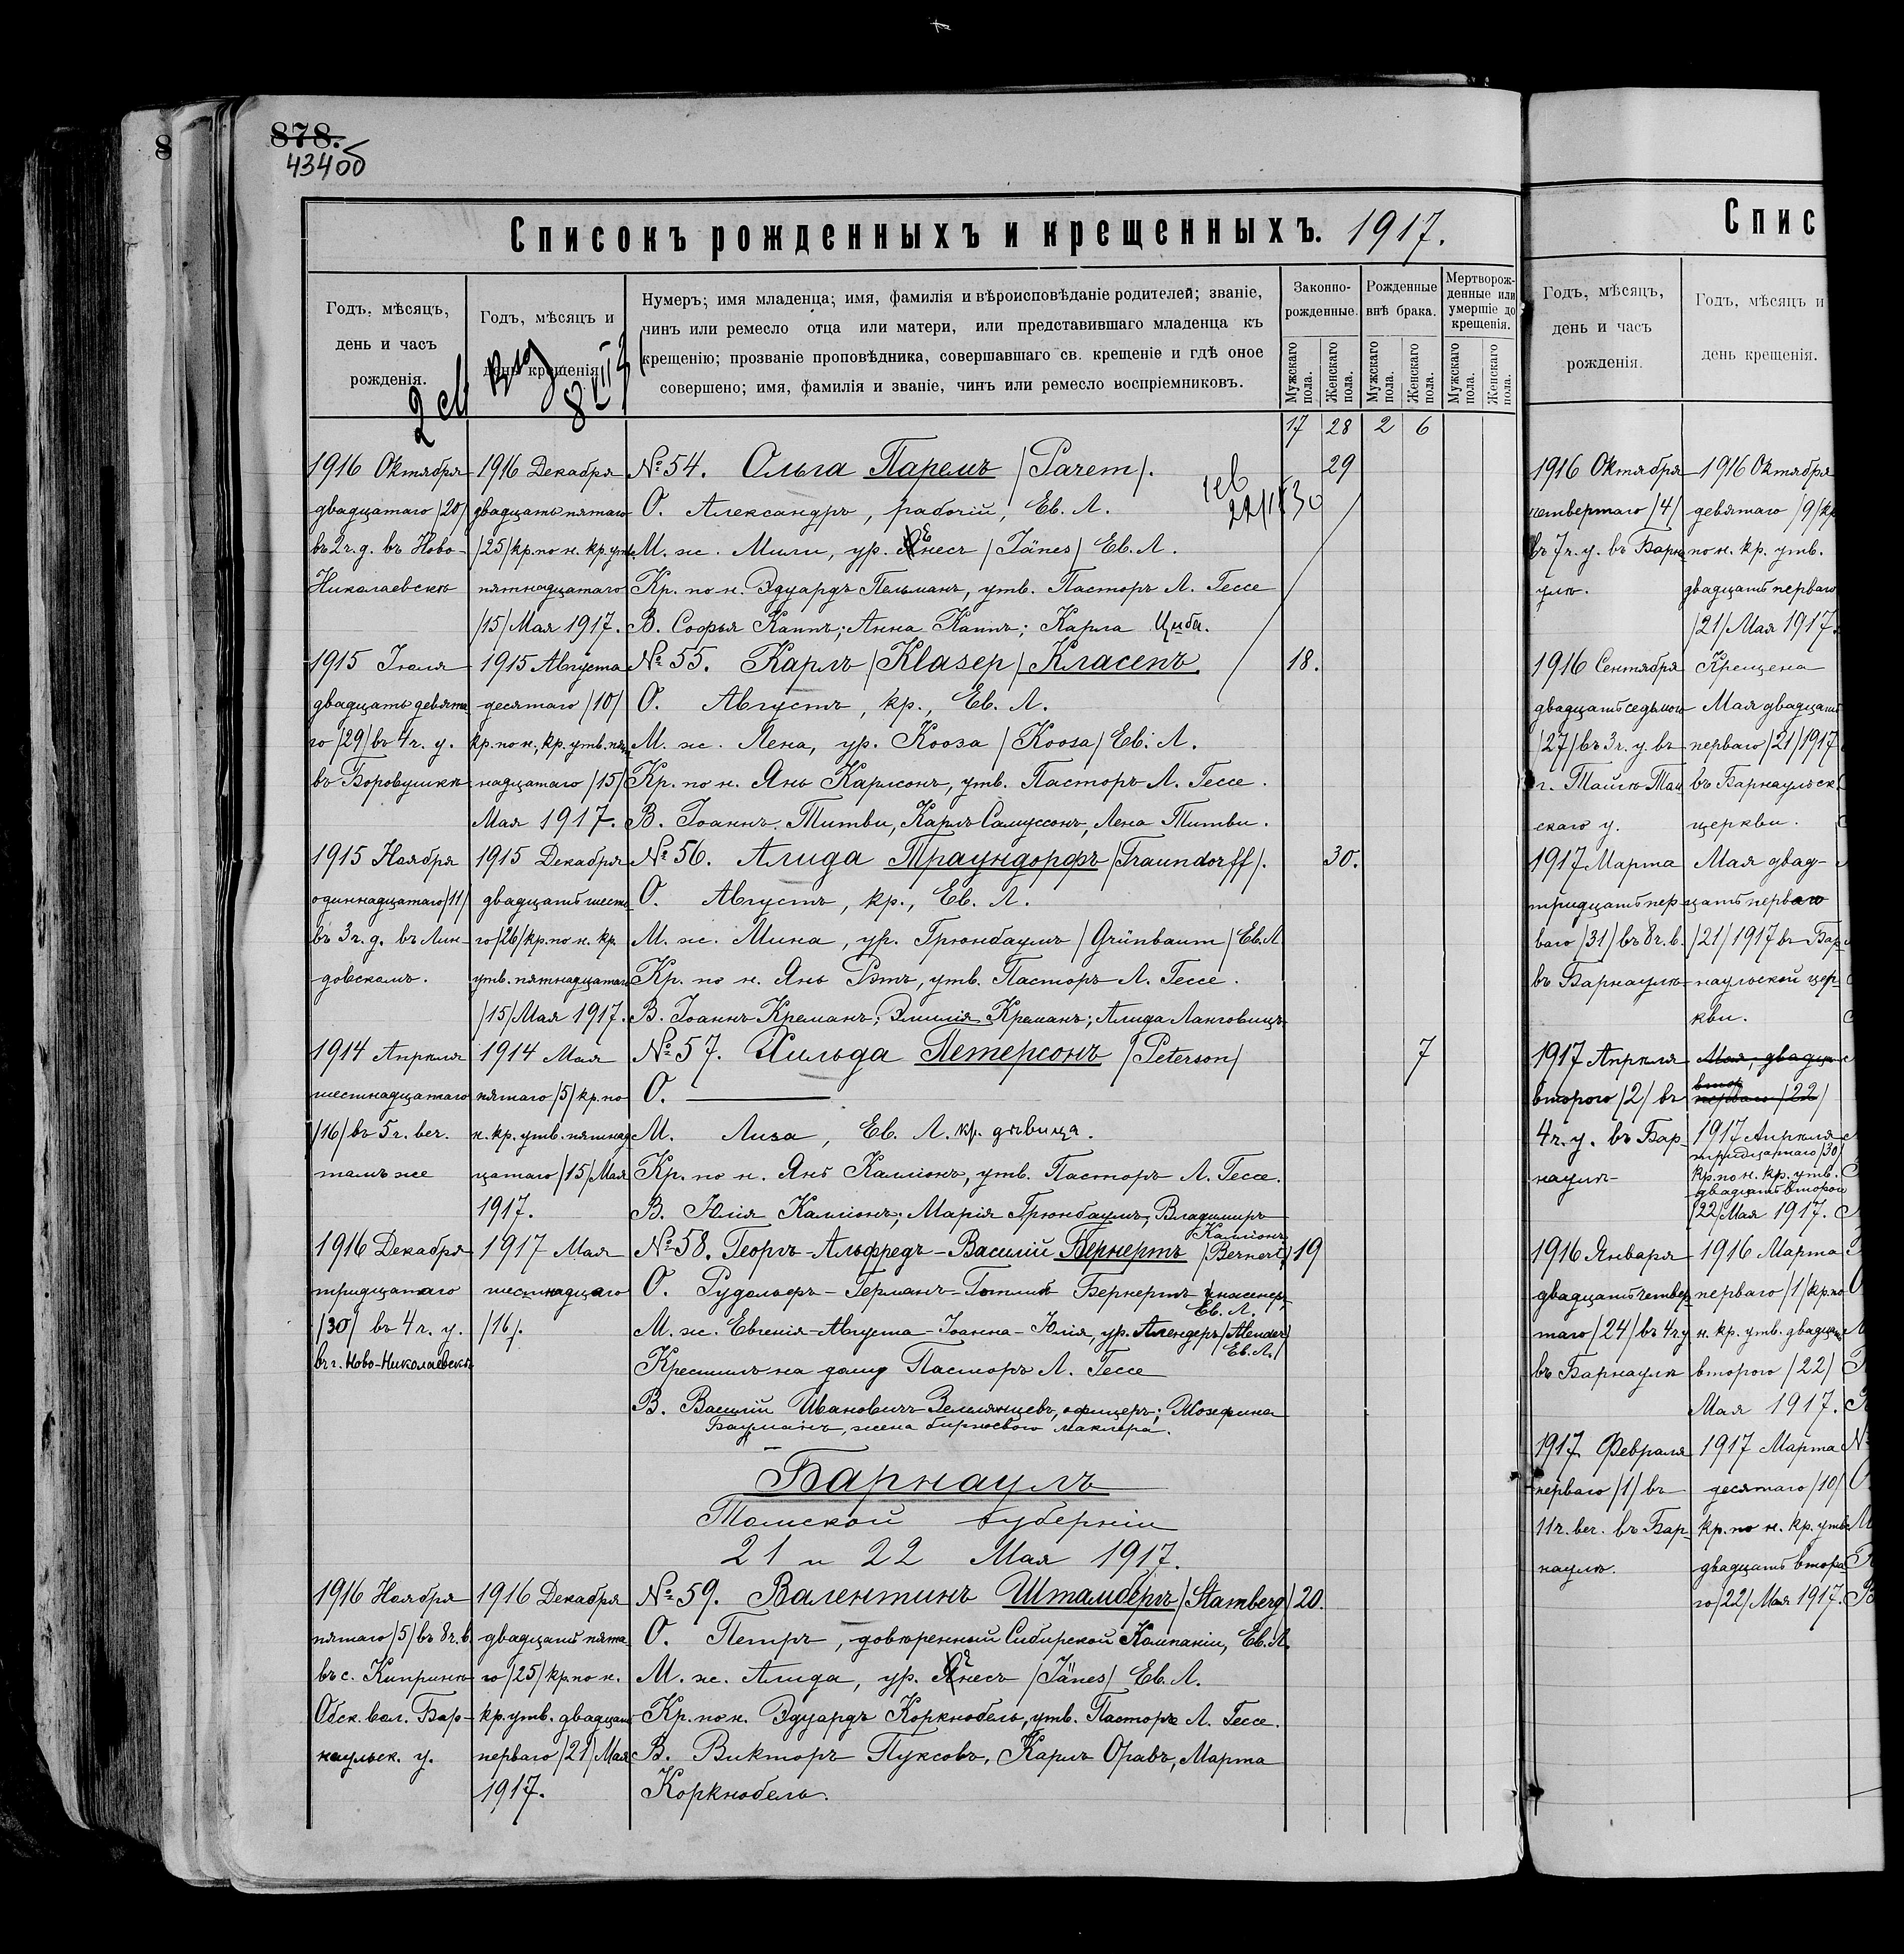 878.
434об
Списокъ рожденныхъ и крещенныхъ. 1917.
Годъ, мѣсяцъ,
день и часъ
рожденія.
Годъ, мѣсяцъ и
день крещенія.
Нумеръ; имя младенца; имя, фамилія и вѣроисповѣданіе родителей; званіе,
чинъ или ремесло отца или матери, или представившаго младенца къ
крещенію; прозваніе проповѣдника, совершавшаго св. крещеніе и гдѣ оное
совершено; имя, фамилія и званіе, чинъ или ремесло воспріемниковъ.
Законно-
рожденные.
Рожденные
внѣ брака.
Мертворож-
денные или
умершіе до
крещенія.
Мужскаго пола.
Женскаго пола.
Мужскаго пола.
Женскаго пола.
Мужскаго пола.
Женскаго пола.
17 28 2 6
1916 Октября
двадцатаго /20/
въ 2 ч. д. въ Ново-
Николаевскѣ
1916 Декабря
двадцать пятаго
/25/ кр. по н. кр. утв.
пятнадцатаго
/15/ Мая 1917.
№ 54. Ольга Паремъ /Parem/.
О. Александръ, рабочій, Ев. Л.
М. ж. Мили, ур. Енесъ /Jänes/ Ев. Л.
Кр. по н. Эдуардъ Пельманъ, утв. Пасторъ Л. Гессе
В. Софья Каппъ; Анна Каппъ; Карла Циба.
29
1915 Іюля
двадцать девята
го /29/ въ 4 ч. у.
въ Боровушкѣ
1915 Августа
десятаго /10/
кр. по н., кр. утв. пят
надцатаго /15/
Мая 1917.
№ 55. Карлъ /Klasep/ Класепъ
О. Августъ, кр., Ев. Л.
М. ж. Лена, ур. Кооза /Koosa/ Ев. Л.
Кр. по н. Янъ Карлсонъ, утв. Пасторъ Л. Гессе.
В. Іоаннъ Титви, Карлъ Самуссонъ, Лена Титви.
18.
1915 Ноября
одиннадцатаго /11/
въ 3 ч. д. въ Лин-
довскомъ.
1915 Декабря
двадцать шеста
го /26/ кр. по н. кр.
утв. пятнадцатаго
/15/ Мая 1917.
№ 56. Алида Траундорфъ /Traundorff/.
О. Августъ, кр., Ев. Л.
М. ж. Мина, ур. Грюнбаумъ /Grünbaum/ Ев. Л
Кр. по н. Янъ Рэтъ, утв. Пасторъ Л. Гессе.
В. Іоаннъ Креманъ; Эмилія Креманъ; Алида Ланговицъ
30.
1914 Апрѣля
шестнадцатаго
/16/ въ 5 ч. веч.
тамъ же
1914 Мая
пятаго /5/ кр. по
н. кр. утв. пятнад
цатаго /15/ Мая
1917.
№ 57. Хильда Петерсонъ /Peterson/
О.
М. Лиза, Ев. Л. кр. дѣвица.
Кр. по н. Янъ Калліонъ, утв. Пасторъ Л. Гессе.
В. Юлія Калліонъ; Марія Грюнбаумъ; Владимиръ
Калліонъ
7
1916 Декабря
тридцатаго
/30/ въ 4 ч. у.
въ г. Ново-Николаевскѣ
1917 Мая
шестнадцаго
/16/.
№ 58. Георгъ-Альфредъ-Василій Бернертъ /Bernert/
О. Рудольфъ-Германъ-Готлибъ Бернертъ инженеръ,
Ев. Л.
М. ж. Евгенія-Августа-Іоанна-Юлія, ур. Алендеръ /Alender/
Ев. Л.
Крестилъ на дому Пасторъ Л. Гессе
В. Василій Ивановичъ Землянцевъ, офицеръ; Жозефина
Бауманъ, жена биржевого маклера.
19
Барнаулъ
Томской губерніи
21 и 22 Мая 1917.
1916 Ноября
пятаго /5/ въ 8 ч. в.
въ с. Киприно
Обск. вол. Бар-
наульск. у.
1916 Декабря
двадцать пята
го /25/ кр. по н.
кр. утв. двадцать
перваго /21/ Мая
1917.
№ 59. Валентинъ Штамбергъ /Stamberg/
О. Петръ, довѣренный Сибирской Компаніи, Ев. Л.
М. ж. Алида, ур. Енесъ /Jänes/ Ев. Л.
Кр. по н. Эдуардъ Коркнобель, утв. Пасторъ Л. Гессе.
В. Викторъ Пуксовъ, Карлъ Оравъ, Марта
Коркнобель.
20.
Спис
Годъ, мѣсяцъ,
день и часъ
рожденія.
Годъ, мѣсяцъ и
день крещенія.
1916 Октября
четвертаго /4/
въ 7 ч. у. въ Барна
улѣ.
1916 Октября
девятаго /9/ кр
по н. кр. утв.
двадцать перваго
/21/ Мая 1917.
1916 Сентября
двадцать седьмого
/27/ въ 3 ч. у. въ
г. Тайгѣ Том
скаго у.
Крещена
Мая двадцать
перваго /21/ 1917
въ Барнаульск.
церкви.
1917 Марта
тридцать пер-
ваго /31/ въ 8 ч. в.
въ Барнаулѣ
Мая двад-
цать перваго
/21/ 1917 въ Бар-
наульской цер-
кви.
1917 Апрѣля
второго /2/ въ
4 ч. у. въ Бар-
наулѣ
1917 Апрѣля
тридцатаго /30/
кр. по н. кр. утв.
двадцать второго
/22/ Мая 1917.
1916 Января
двадцать четвер
таго /24/ въ 4 ч. у.
въ Барнаулѣ
1916 Марта
перваго /1/ кр. по
н. кр. утв. двадцать
второго /22/
Мая 1917.
1917 Февраля
перваго /1/ въ
11 ч. веч. въ Бар-
наулѣ.
1917 Марта
десятаго /10/
кр. по н. кр. утв.
двадцать второ
го /22/ Мая 1917.